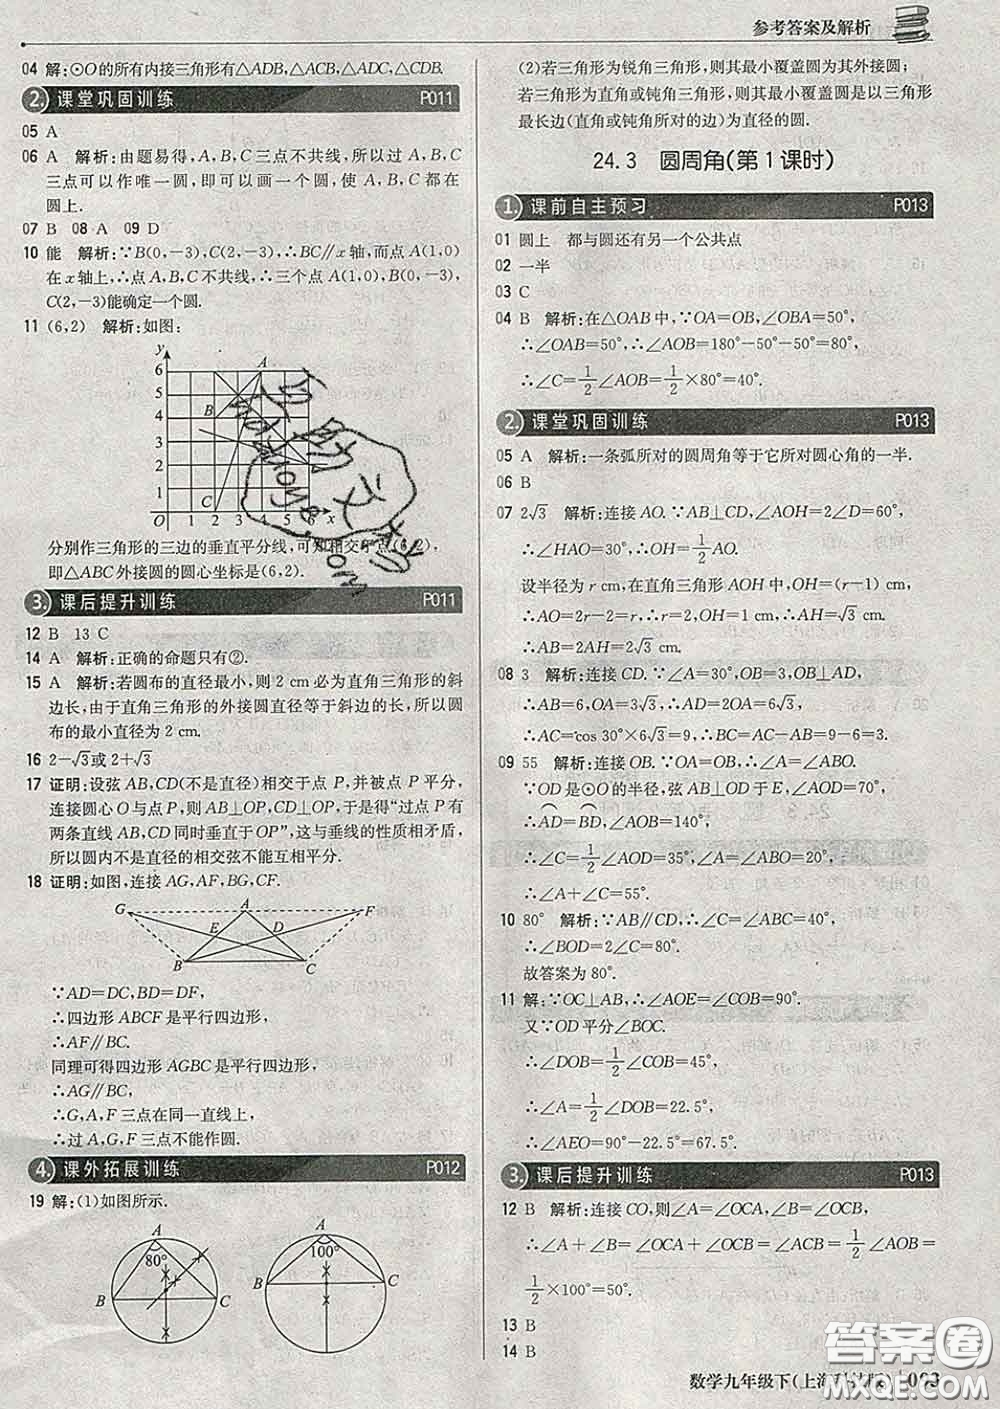 参考答案及解析
04 解:⊙O的所有内接三角形有△ADB,△ACB,△ADC,△CDB.
2. 课堂巩固训练 P011
05 A
06 A 解析:由题易得,A,B,C三点不共线,所以过A,B,C
三点可以作唯一圆,即可以画一个圆,使A,B,C都在
圆上.
07 B 08 A 09 D
10 能 解析:∵B(0,−3),C(2,−3),∴BC∥x轴,而点A(1,0)
在x轴上,∴点A,B,C不共线,∴三个点A(1,0),B(0,−3),
C(2,−3)能确定一个圆.
11 (6,2) 解析:如图:
y
6
5
4
3
2
1
O 1 2 3 4 5 6 x
A
B
C
分别作三角形的三边的垂直平分线,可知相交于点(6,2),
即△ABC外接圆的圆心坐标是(6,2).
3. 课后提升训练 P011
12 B 13 C
14 A 解析:正确的命题只有②.
15 A 解析:若圆布的直径最小,则2 cm必为直角三角形的斜
边长,由于直角三角形的外接圆直径等于斜边的长,所以圆
布的最小直径为2 cm.
16 2−√3或2+√3
17 证明:设弦AB,CD(不是直径)相交于点P,并被点P平分,
连接圆心O与点P,则AB⊥OP,CD⊥OP,于是有“过点P有
两条直线AB,CD同时垂直于OP”,这与垂线的性质相矛盾,
所以圆内不是直径的相交弦不能互相平分.
18 证明:如图,连接AG,AF,BG,CF.
G A F
E D
B C
∵AD=DC,BD=DF,
∴四边形ABCF是平行四边形,
∴AF∥BC.
同理可得四边形AGBC是平行四边形,
∴AG∥BC,
∴G,A,F三点在同一直线上,
∴过A,G,F三点不能作圆.
4. 课外拓展训练 P012
19 解:(1)如图所示.
A
80°
B C
A
100°
B C
(2)若三角形为锐角三角形,则其最小覆盖圆为其外接圆;
若三角形为直角或钝角三角形,则其最小覆盖圆是以三角形
最长边(直角或钝角所对的边)为直径的圆.
24.3 圆周角(第1课时)
1. 课前自主预习 P013
01 圆上 都与圆还有另一个公共点
02 一半
03 C
04 B 解析:在△OAB中,∵OA=OB,∠OBA=50°,
∴∠OAB=50°,∴∠AOB=180°−50°−50°=80°,
∴∠C=1/2∠AOB=1/2×80°=40°.
2. 课堂巩固训练 P013
05 A 解析:一条弧所对的圆周角等于它所对圆心角的一半.
06 B
07 2√3 解析:连接AO.∵AB⊥CD,∠AOH=2∠D=60°,
∴∠HAO=30°,∴OH=1/2AO.
设半径为r cm,在直角三角形AOH中,∵OH=(r−1) cm,
∴AO=2r−2=r,∴r=2,∴OH=1 cm,∴AH=√3 cm,
∴AB=2AH=2√3 cm.
08 3 解析:连接CD.∵∠A=30°,OB=3,OB⊥AD,
∴AB=6,OA=3√3,∴AD=2OA=6√3,
∴AC=cos 30°×6√3=9,∴BC=AC−AB=3.
09 55 解析:连接OB.∵OA=OB,∴∠A=∠ABO.
∵OD是⊙O的半径,弦AB⊥OD于E,∠AOD=70°,
∴AD=BD,∠AOB=140°,
∴∠C=1/2∠AOD=35°,∠A=∠ABO=20°,
∴∠A+∠C=55°.
10 80° 解析:∵AB∥CD,∴∠C=∠ABC=40°,
∴∠BOD=2∠C=80°.
故答案为80°.
11 解:∵OC⊥AB,∴∠AOE=∠COB=90°.
又∵OD平分∠BOC.
∴∠DOB=1/2∠COB=45°,
∴∠A=1/2∠DOB=22.5°,
∴∠AEO=90°−22.5°=67.5°.
3. 课后提升训练 P013
12 B 解析:连接CO,则∠A=∠OCA,∠B=∠OCB,
∴∠A+∠B=∠OCA+∠OCB=∠ACB=1/2∠AOB=
1/2×100°=50°.
13 B
14 B
答案圈